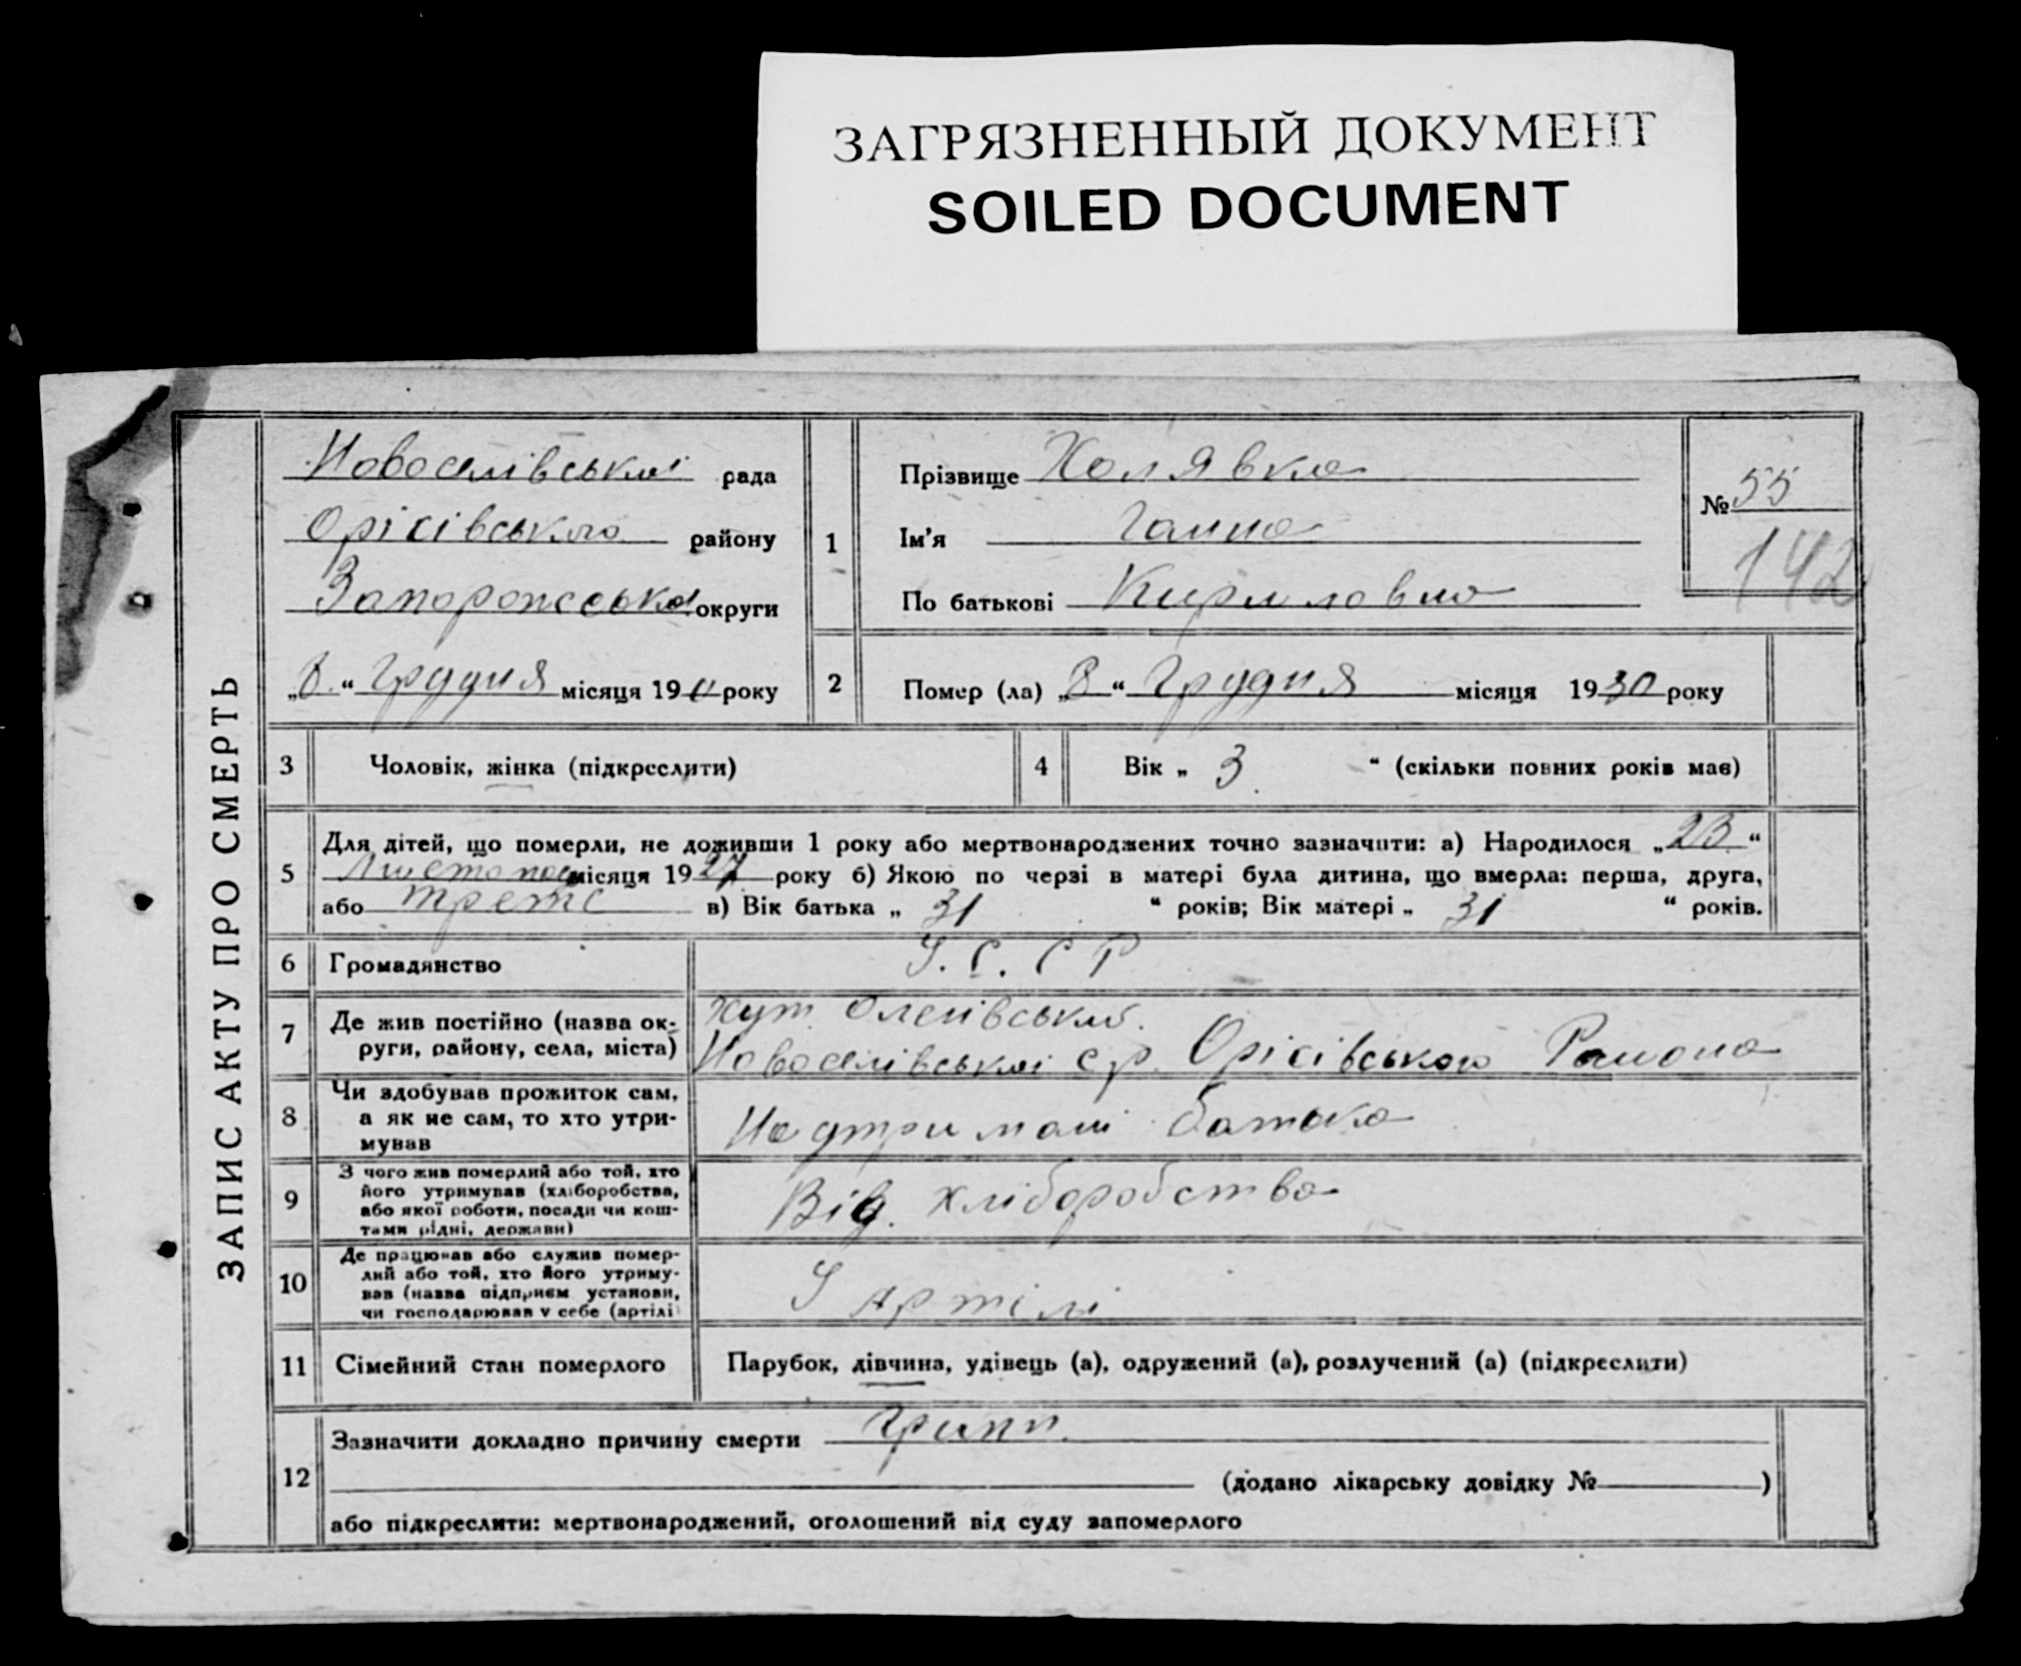 ЗАГРЯЗНЕННЫЙ ДОКУМЕНТ
SOILED DOCUMENT
ЗАПИС АКТУ ПРО СМЕРТЬ
Новоселівської рада
Орісівського району
Запорожської округи
„8“ Грудня місяця 19 року
1
Прізвище Холявка
Ім'я Ганна
По батькові Кириловна
№ 55
142
2
Помер (ла) „8“ Грудня місяця 1930 року
3 Чоловік, жінка (підкреслити)
4 Вік „ 3 “ (скільки повних років має)
5 Для дітей, що померли, не доживши 1 року або мертвонароджених точно зазначити: а) Народилося „23“
Листопад місяця 1927 року б) Якою по черзі в матері була дитина, що вмерла: перша, друга,
або третє в) Вік батька „ 31 “ років; Вік матері „ 31 “ років.
6 Громадянство У.С.С Р
7 Де жив постійно (назва ок-
руги, району, села, міста)
Хут. Оленівський.
Новоселівської с.р. Орісівського Района
8 Чи здобував прожиток сам,
а як не сам, то хто утри-
мував
На утримані батька
9 З чого жив померлий або той, хто
його утримував (хліборобства,
або якої роботи, посади чи кош-
тами рідні, держави)
Від. хліборобства
10 Де працював або служив помер-
лий або той, хто його утриму-
вав (назва підприєм установи,
чи господарював у себе (артілі)
У Артілі
11 Сімейний стан померлого Парубок, дівчина, удівець (а), одружений (а), розлучений (а) (підкреслити)
12 Зазначити докладно причину смерти Грипп.
(додано лікарську довідку № )
або підкреслити: мертвонароджений, оголошений від суду запомерлого